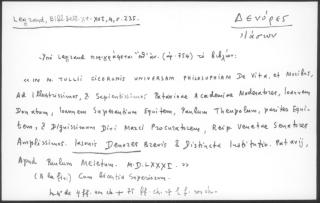 Legrand, Bibl. Hell. XV-XVI, 4, σ. 235.
Δενόρες
Ἰάσων
Legrand περιγράφεται (ἀρ. 754) τὸ βιβλίον:
« IN M. TULLII CICERONIS UNIVERSAM PHILOSOPHIAM De Vita, et Moribus,
Ad Illustrissimos, & Sapientissimos Patavinae Academiae Moderatores, Ioannem
Donatum, Ioannem Superantium Equitem, Paulum Theupolum, pariter Equi-
tem, & Dignissimum Divi Marci Procuratorem, Reip. Venetae Senatores
Amplissimos. Iasonis Denores Brevis & Distincta Institutio. Patavij,
Apud Paulum Meietum. M.D.LXXXI. »
(À la fin:) Con licentia Superiorum.
de 4 ff. non ch + 75 ff. ch. + 1 f. non ch.